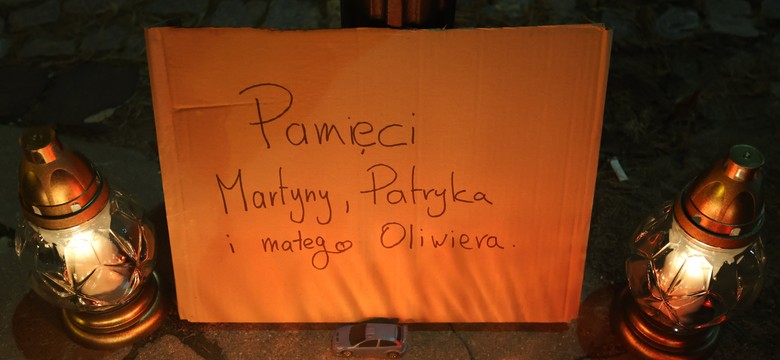 Pamięci
Martyny, Patryka
i małego Oliwiera.